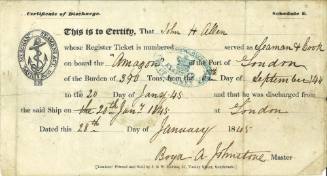 Certificate of Discharge. Schedule E.
This is to Certify, That John H Allen
whose Register Ticket is numbered served as Seaman & Cook
on board the "Amazon" of the Port of London
of the Burden of 390 Tons, from the of September 44
to the 20 Jany 45 and that he was discharged
from the said Ship on the 25th Jany 1845 at London
Dated this 28th day of January 1845
Master